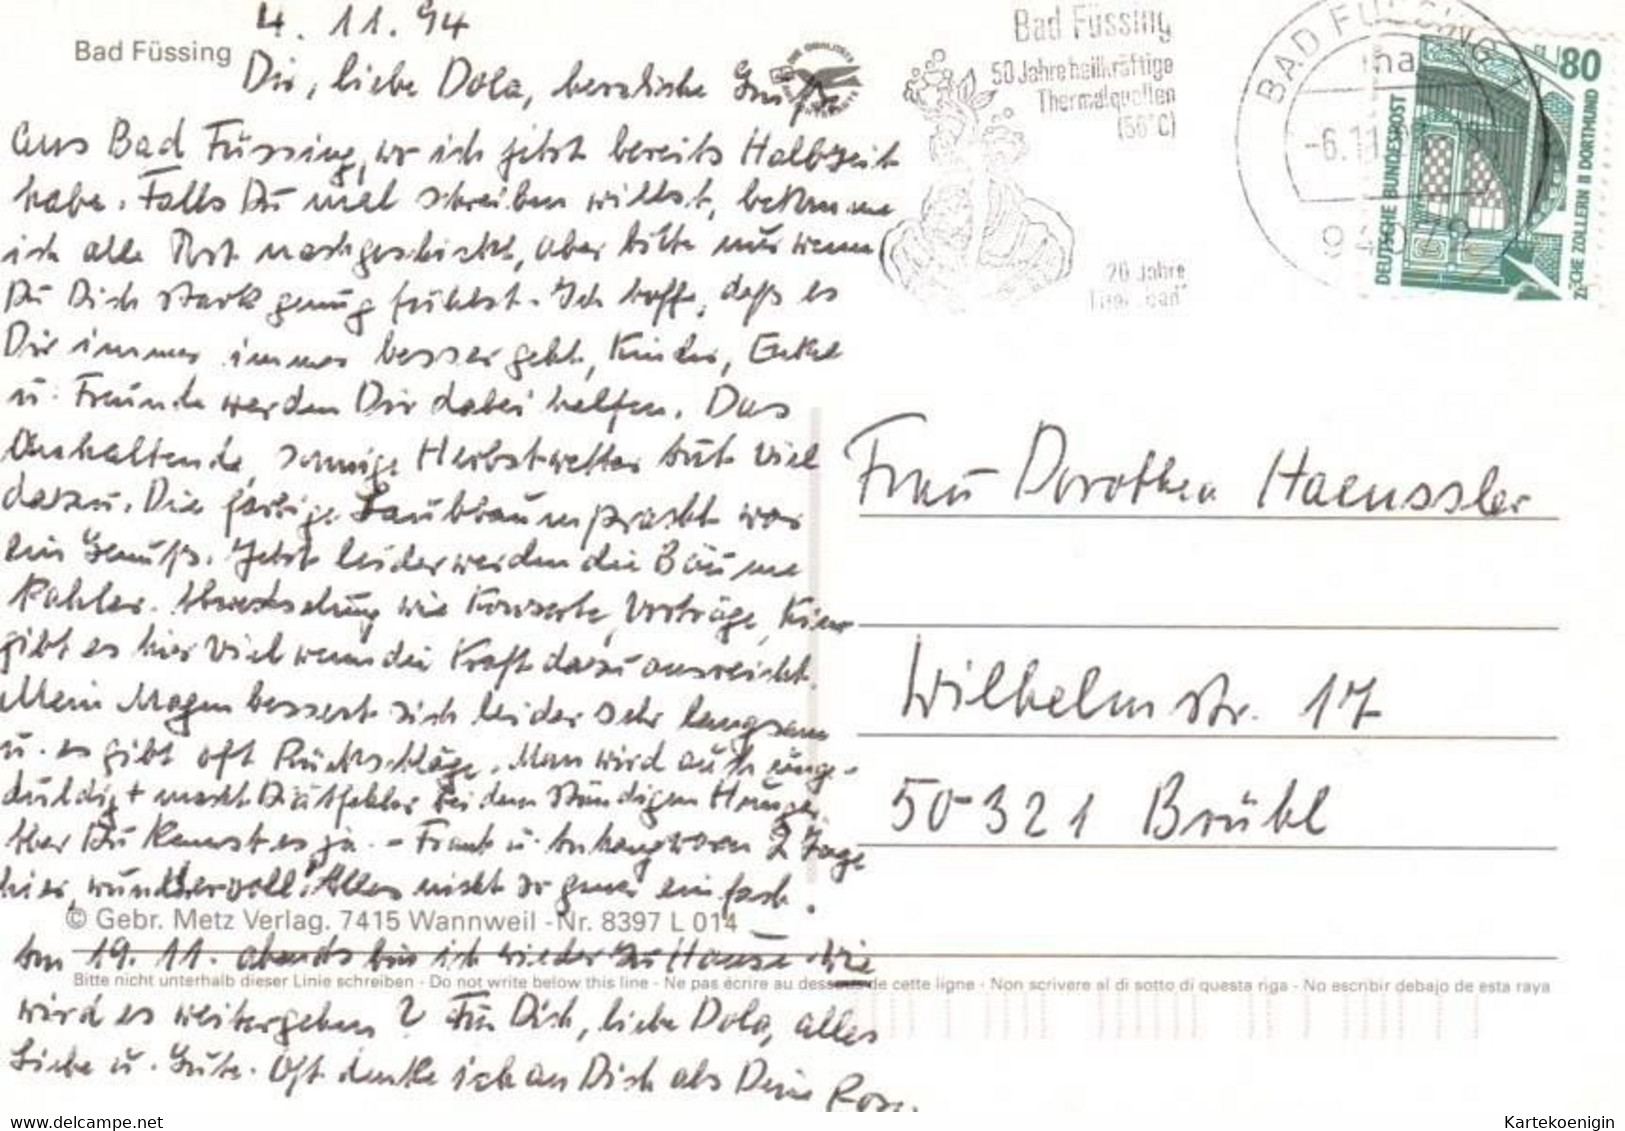 4.11.94
Bad Füssing
Dir, liebe Dola, herzliche Grüße
aus Bad Füssing, wo ich jetzt bereits Halbzeit
habe. Falls Du mal schreiben willst, bekomme
ich alle Post nachgeschickt, aber bitte nur wenn
Du Dich stark genug fühlst. Ich hoffe, daß es
Dir immer immer besser geht, Kinder, Enkel
u. Freunde werden Dir dabei helfen. Das
Anhaltende, sonnige Herbstwetter tut viel
dazu. Die farbige Laubbaumpracht war
ein Genuß. Jetzt leider werden die Bäume
kahler. Abwechselung wie Konzerte, Vorträge, Kino
gibt es hier viel wenn die Kraft dazu ausreicht.
Mein Magen bessert sich leider sehr langsam
u. es gibt oft Rückschläge. Man wird auch unge-
duldig + macht Diätfehler bei dem ständigen Hunger
Aber Du kennst es ja. - Frank u. Anhang waren 2 Tage
hier, wundervoll! Alles nicht so ganz einfach.
© Gebr. Metz Verlag. 7415 Wannweil - Nr. 8397 L 014
Am 19.11. abends bin ich wieder zu Hause. Wie
Bitte nicht unterhalb dieser Linie schreiben - Do not write below this line - Ne pas écrire au dessous de cette ligne - Non scrivere al di sotto di questa riga - No escribir debajo de esta raya
wird es weitergehen? Für Dich, liebe Dola, alles
Liebe u. Gute. Oft denke ich an Dich als Deine Rose.
Bad Füssing
50 Jahre heilkräftige
Thermalquellen
(56°C)
20 Jahre
Titel "Bad"
BAD FÜSSING 1
-6.11.
94072
80
DEUTSCHE BUNDESPOST
ZECHE ZOLLERN II DORTMUND
Frau Dorothea Haenssler
Wilhelmstr. 17
50-321 Brühl
www.delcampe.net
Kartekoenigin